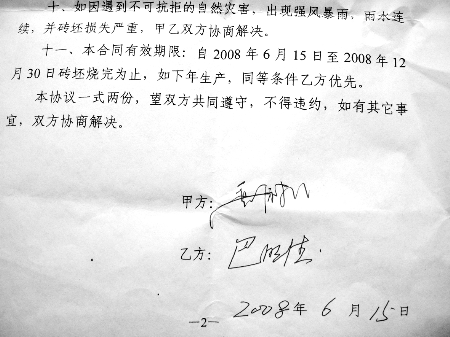 十、如因遇到不可抗拒的自然灾害，出现强风暴雨，雨水连
续，并砖坯损失严重，甲乙双方协商解决。
十一、本合同有效期限：自2008年6月15日至2008年12
月30日砖坯烧完为止，如下年生产，同等条件乙方优先。
本协议一式两份，望双方共同遵守，不得违约，如有其它事
宜，双方协商解决。
甲方：
乙方：巴
2008年6月15日
—2—